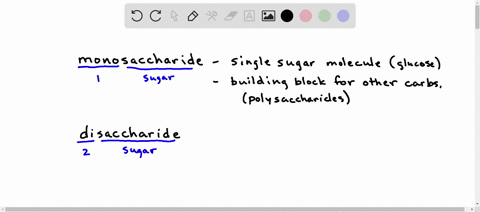 monosaccharide - single sugar molecule (glucose)
1 sugar - building block for other carbs.
(polysaccharides)
disaccharide
2 sugar